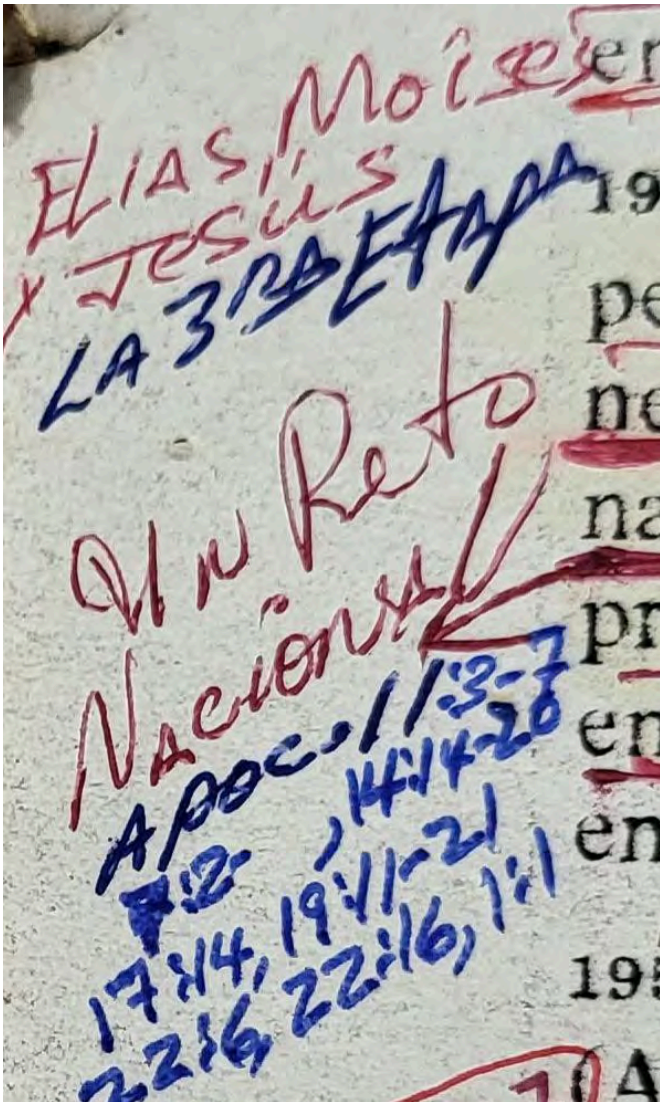 ELIAS, MoisEs
x Jesús
LA 3RA EtApA
Un Reto
NacionAl
Apoc. 11:3-7
7:2- , 14:14-20
17:14, 19:11-21
22:6, 22:16, 1:1
en
19
pe
ne
na
pr
en
en
195
(A